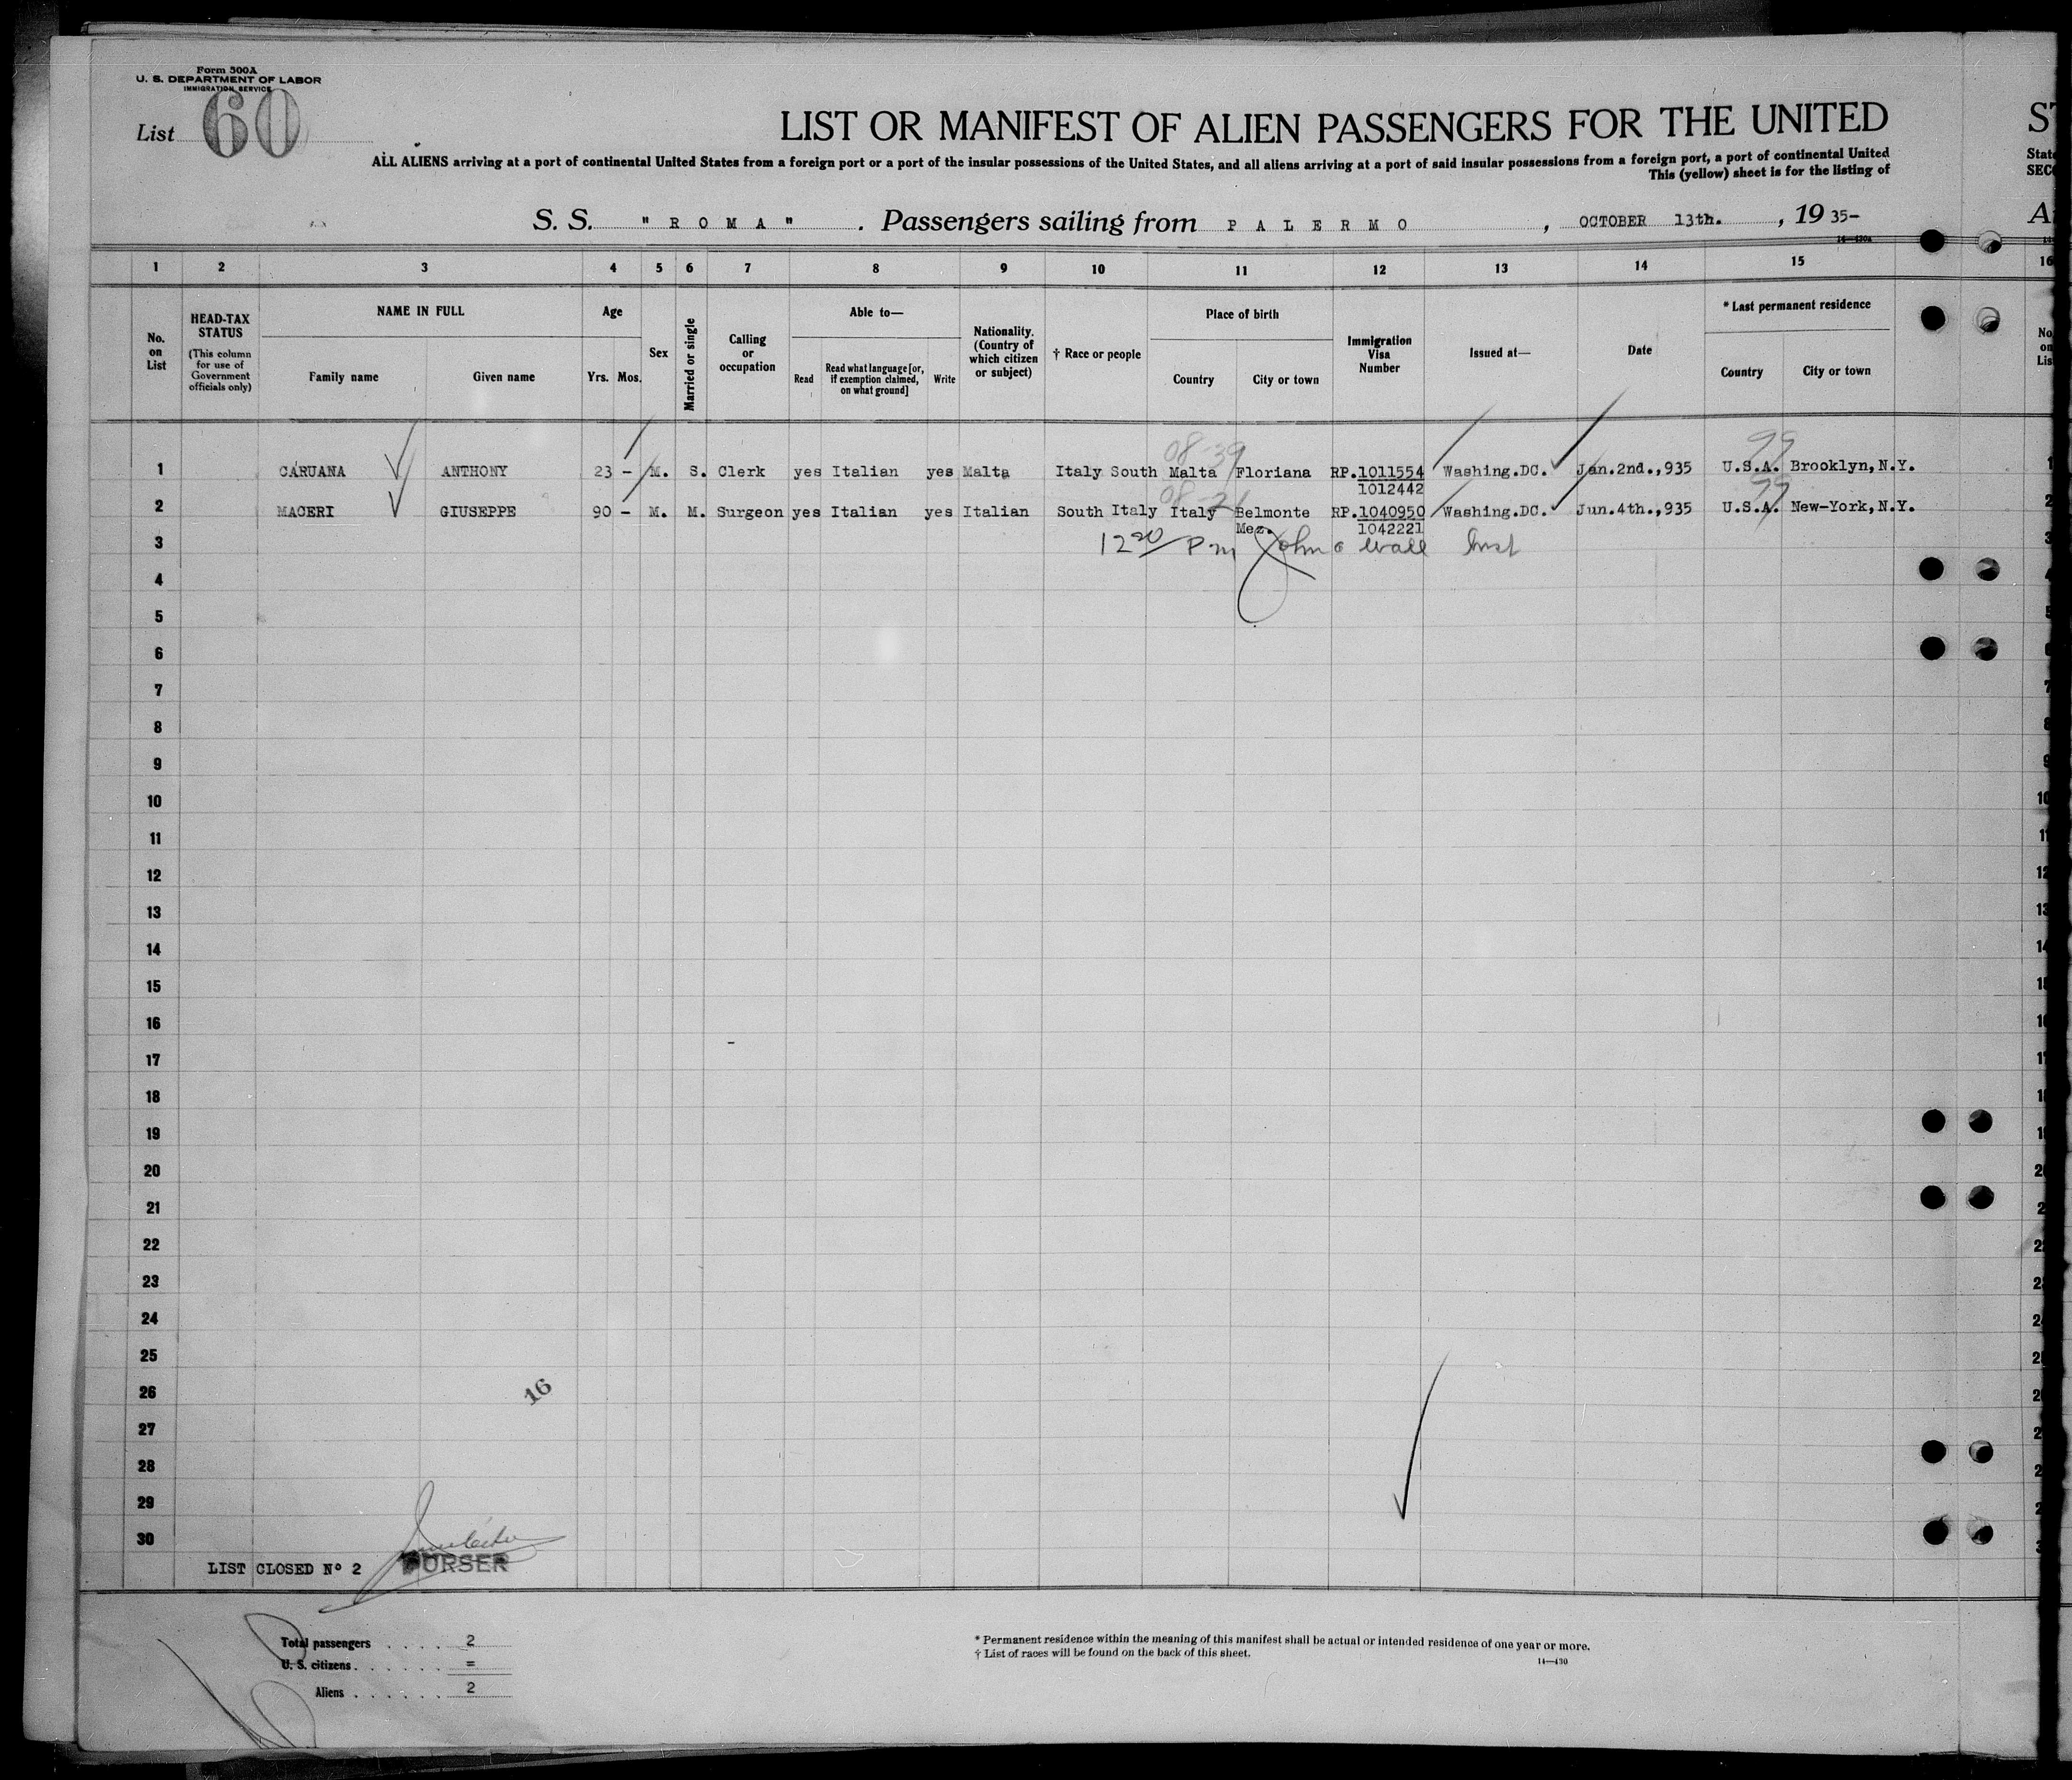 Form 500A
U. S. DEPARTMENT OF LABOR
IMMIGRATION SERVICE
List 60
LIST OR MANIFEST OF ALIEN PASSENGERS FOR THE UNITED
ALL ALIENS arriving at a port of continental United States from a foreign port or a port of the insular possessions of the United States, and all aliens arriving at a port of said insular possessions from a foreign port, a port of continental United
This (yellow) sheet is for the listing of
S. S. " R O M A " . Passengers sailing from P A L E R M O , OCTOBER 13th. , 19 35-
1 2 3 4 5 6 7 8 9 10 11 12 13 14 15 16
No. on List
HEAD-TAX STATUS
(This column for use of Government officials only)
NAME IN FULL
Family name Given name
Age
Yrs. Mos.
Sex
Married or single
Calling or occupation
Able to—
Read
Read what language [or, if exemption claimed, on what ground]
Write
Nationality. (Country of which citizen or subject)
† Race or people
Place of birth
Country City or town
Immigration Visa Number
Issued at—
Date
* Last permanent residence
Country City or town
08-39 99
1 CARUANA ANTHONY 23 - M. S. Clerk yes Italian yes Malta Italy South Malta Floriana RP.1011554 Washing.DC. Jan.2nd.,935 U.S.A. Brooklyn,N.Y.
1012442
99
2 MACERI GIUSEPPE 90 - M. M. Surgeon yes Italian yes Italian South Italy Italy Belmonte RP.1040950 Washing.DC. Jun.4th.,935 U.S.A. New-York,N.Y.
Mez. 1042221
3 12 20 Pm John Wall Inst
4
5
6
7
8
9
10
11
12
13
14
15
16
17
18
19
20
21
22
23
24
25
26 16
27
28
29
30
LIST CLOSED Nº 2 PURSER
Total passengers . . . . 2
U. S. citizens . . . . . . =
Aliens . . . . . . 2
* Permanent residence within the meaning of this manifest shall be actual or intended residence of one year or more.
† List of races will be found on the back of this sheet.
14—430